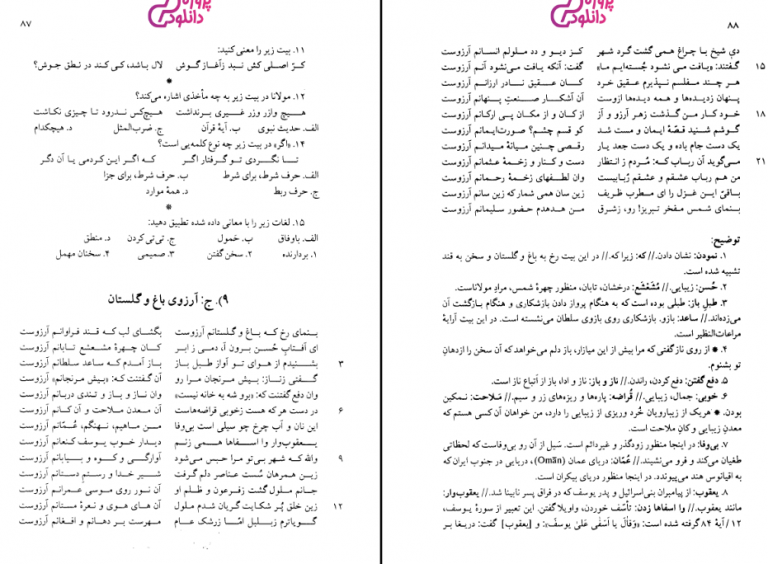 پروژه
دانلود
۸۷
۱۱. بیت زیر را معنی کنید:
کرّ اصلی کش نبد زآغاز گوش لال باشد، کی کند در نطق جوش؟
*
۱۲. مولانا در بیت زیر به چه مأخذی اشاره می‌کند؟
هیچ وازر وزر غیری برنداشت هیچ‌کس ندرود تا چیزی نکاشت
الف. حدیث نبوی ب. آیهٔ قرآن ج. ضرب‌المثل د. هیچکدام
۱۴. «اگر» در بیت زیر چه نوع کلمه‌یی است؟
تا نگردی تو گرفتار اگر که اگر این کردمی یا آن دگر
الف. حرف شرط، برای شرط ب. حرف شرط، برای جزا
ج. حرف ربط د. همهٔ موارد
*
۱۵. لغات زیر را با معانی داده شده تطبیق دهید:
الف. باوفاق ب. خمول ج. تی‌تی کردن د. منطق
۱. بردارنده ۲. سخن گفتن ۳. صمیمی ۴. سخنان مهمل
۹). ج: آرزوی باغ و گلستان
بنمای رخ که باغ و گلستانم آرزوست بگشای لب که قند فراوانم آرزوست
ای آفتاب حُسن برون آ، دمی ز ابر کان چهرهٔ مشعشع تابانم آرزوست
۳ بشنیدم از هوای تو آواز طبل باز باز آمدم که ساعد سلطانم آرزوست
گفتی زناز: بیش مرنجان مرا رو آن گفتنت که: «بیش مرنجانم» آرزوست
وان دفع گفتنت که: «برو شه به خانه نیست» وان ناز و باز و تندی دربانم آرزوست
۶ در دست هر که هست زخوبی قراضه‌هاست آن معدن ملاحت و آن کانم آرزوست
این نان و آب چرخ چو سیلی است بی‌وفا من ماهیم، نهنگم، عُمّانم آرزوست
یعقوب‌وار وا اسفاها همی زنم دیدار خوب یوسف کنعانم آرزوست
۹ والله که شهر بی‌تو مرا حبس می‌شود آوارگی و کوه و بیابانم آرزوست
زین همرهان سُست عناصر دلم گرفت شیر خدا و رستم دستانم آرزوست
جانم ملول گشت زفرعون و ظلم او آن نور روی موسی عمرانم آرزوست
۱۲ زین خلق پُر شکایت گریان شدم ملول آن های هوی و نعرهٔ مستانم آرزوست
گویاترم زبلبل امّا زرشک عام مهرست بر دهانم و افغانم آرزوست
پروژه
دانلود
۸۸
دی شیخ با چراغ همی گشت گرد شهر کز دیو و دد ملولم انسانم آرزوست
۱۵ گفتند: «یافت می نشود جُسته‌ایم ما» گفت: آنکه یافت می‌نشود آنم آرزوست
هر چند مفلسم نپذیرم عقیق خرد کان عقیق نادر ارزانم آرزوست
پنهان زدیده‌ها و همه دیده‌ها ازوست آن آشکار صنعتِ پنهانم آرزوست
۱۸ خود کار من گذشت زهر آرزو و آز از کان و از مکان پی ارکانم آرزوست
گوشم شنید قصّهٔ ایمان و مست شد کو قسم چشم؟ صورت‌ایمانم آرزوست
یک دست جام باده و یک دست جعد یار رقصی چنین میانهٔ میدانم آرزوست
۲۱ می‌گوید آن رباب که: مُردم ز انتظار دست و کنار و زخمهٔ عثمانم آرزوست
من هم رباب عشقم و عشقم رَبابیست وان لطفهای زخمهٔ رحمانم آرزوست
باقیّ این غزل را ای مطرب ظریف زین سان همی شمار که زین سانم آرزوست
بنمای شمس مفخر تبریز! رو، زشرق من هدهدم حضور سلیمانم آرزوست
توضیح:
۱. نمودن: نشان دادن.// که: زیرا که.// در این بیت رخ به باغ و گلستان و سخن به قند
تشبیه شده است.
۲. حُسن: زیبایی.// مُشَعْشَع: درخشان، تابان، منظور چهرهٔ شمس، مرادِ مولاناست.
۳. طبل باز: طبلی بوده است که به هنگام پرواز دادن بازشکاری و هنگام بازگشت آن
می‌زده‌اند.// ساعد: بازو. بازشکاری روی بازوی سلطان می‌نشسته است. در این بیت آرایهٔ
مراعات‌النظیر است.
۴. * از روی ناز گفتی که مرا بیش از این میازار، باز دلم می‌خواهد که آن سخن را ازدهانِ
تو بشنوم.
۵. دفع گفتن: دفع کردن، راندن.// ناز و باز: ناز و ادا، باز از اَتباع ناز است.
۶. خوبی: جمال، زیبایی.// قُراضه: پاره‌ها و ریزه‌های زر و سیم.// مَلاحت: نمکین
بودن. * هریک از زیبارویان خُرد وریزی از زیبایی را دارد، من خواهان آن کسی هستم که
معدنِ زیبایی و کانِ ملاحت است.
۷. بی‌وفا: در اینجا منظور زودگذر و غیردائم است. سَیل از آن رو بی‌وفاست که لحظاتی
طغیان می‌کند و فرو می‌نشیند.// عُمّان: دریای عمان (Omān)، دریایی در جنوب ایران که
به اقیانوس هند می‌پیوندد. در اینجا منظور دریای بیکران است.
۸. یعقوب: از پیامبران بنی‌اسرائیل و پدر یوسف که در فراق پسر نابینا شد.// یعقوب‌وار:
مانند یعقوب.// وا اسفاها زدن: تأسّف خوردن، واویلا گفتن. این تعبیر از سورهٔ یوسف،
۱۲/ آیهٔ ۸۴ گرفته شده است: «وَقالَ یا أَسَفَی عَلیَ یوسفَ»: و [یعقوب] گفت: دریغا بر